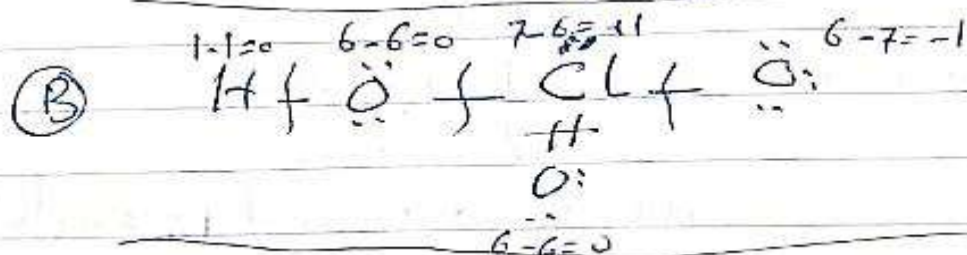 1-1=0 6-6=0 7-6=+1 6-7=-1
B H O Cl O
O
6-6=0